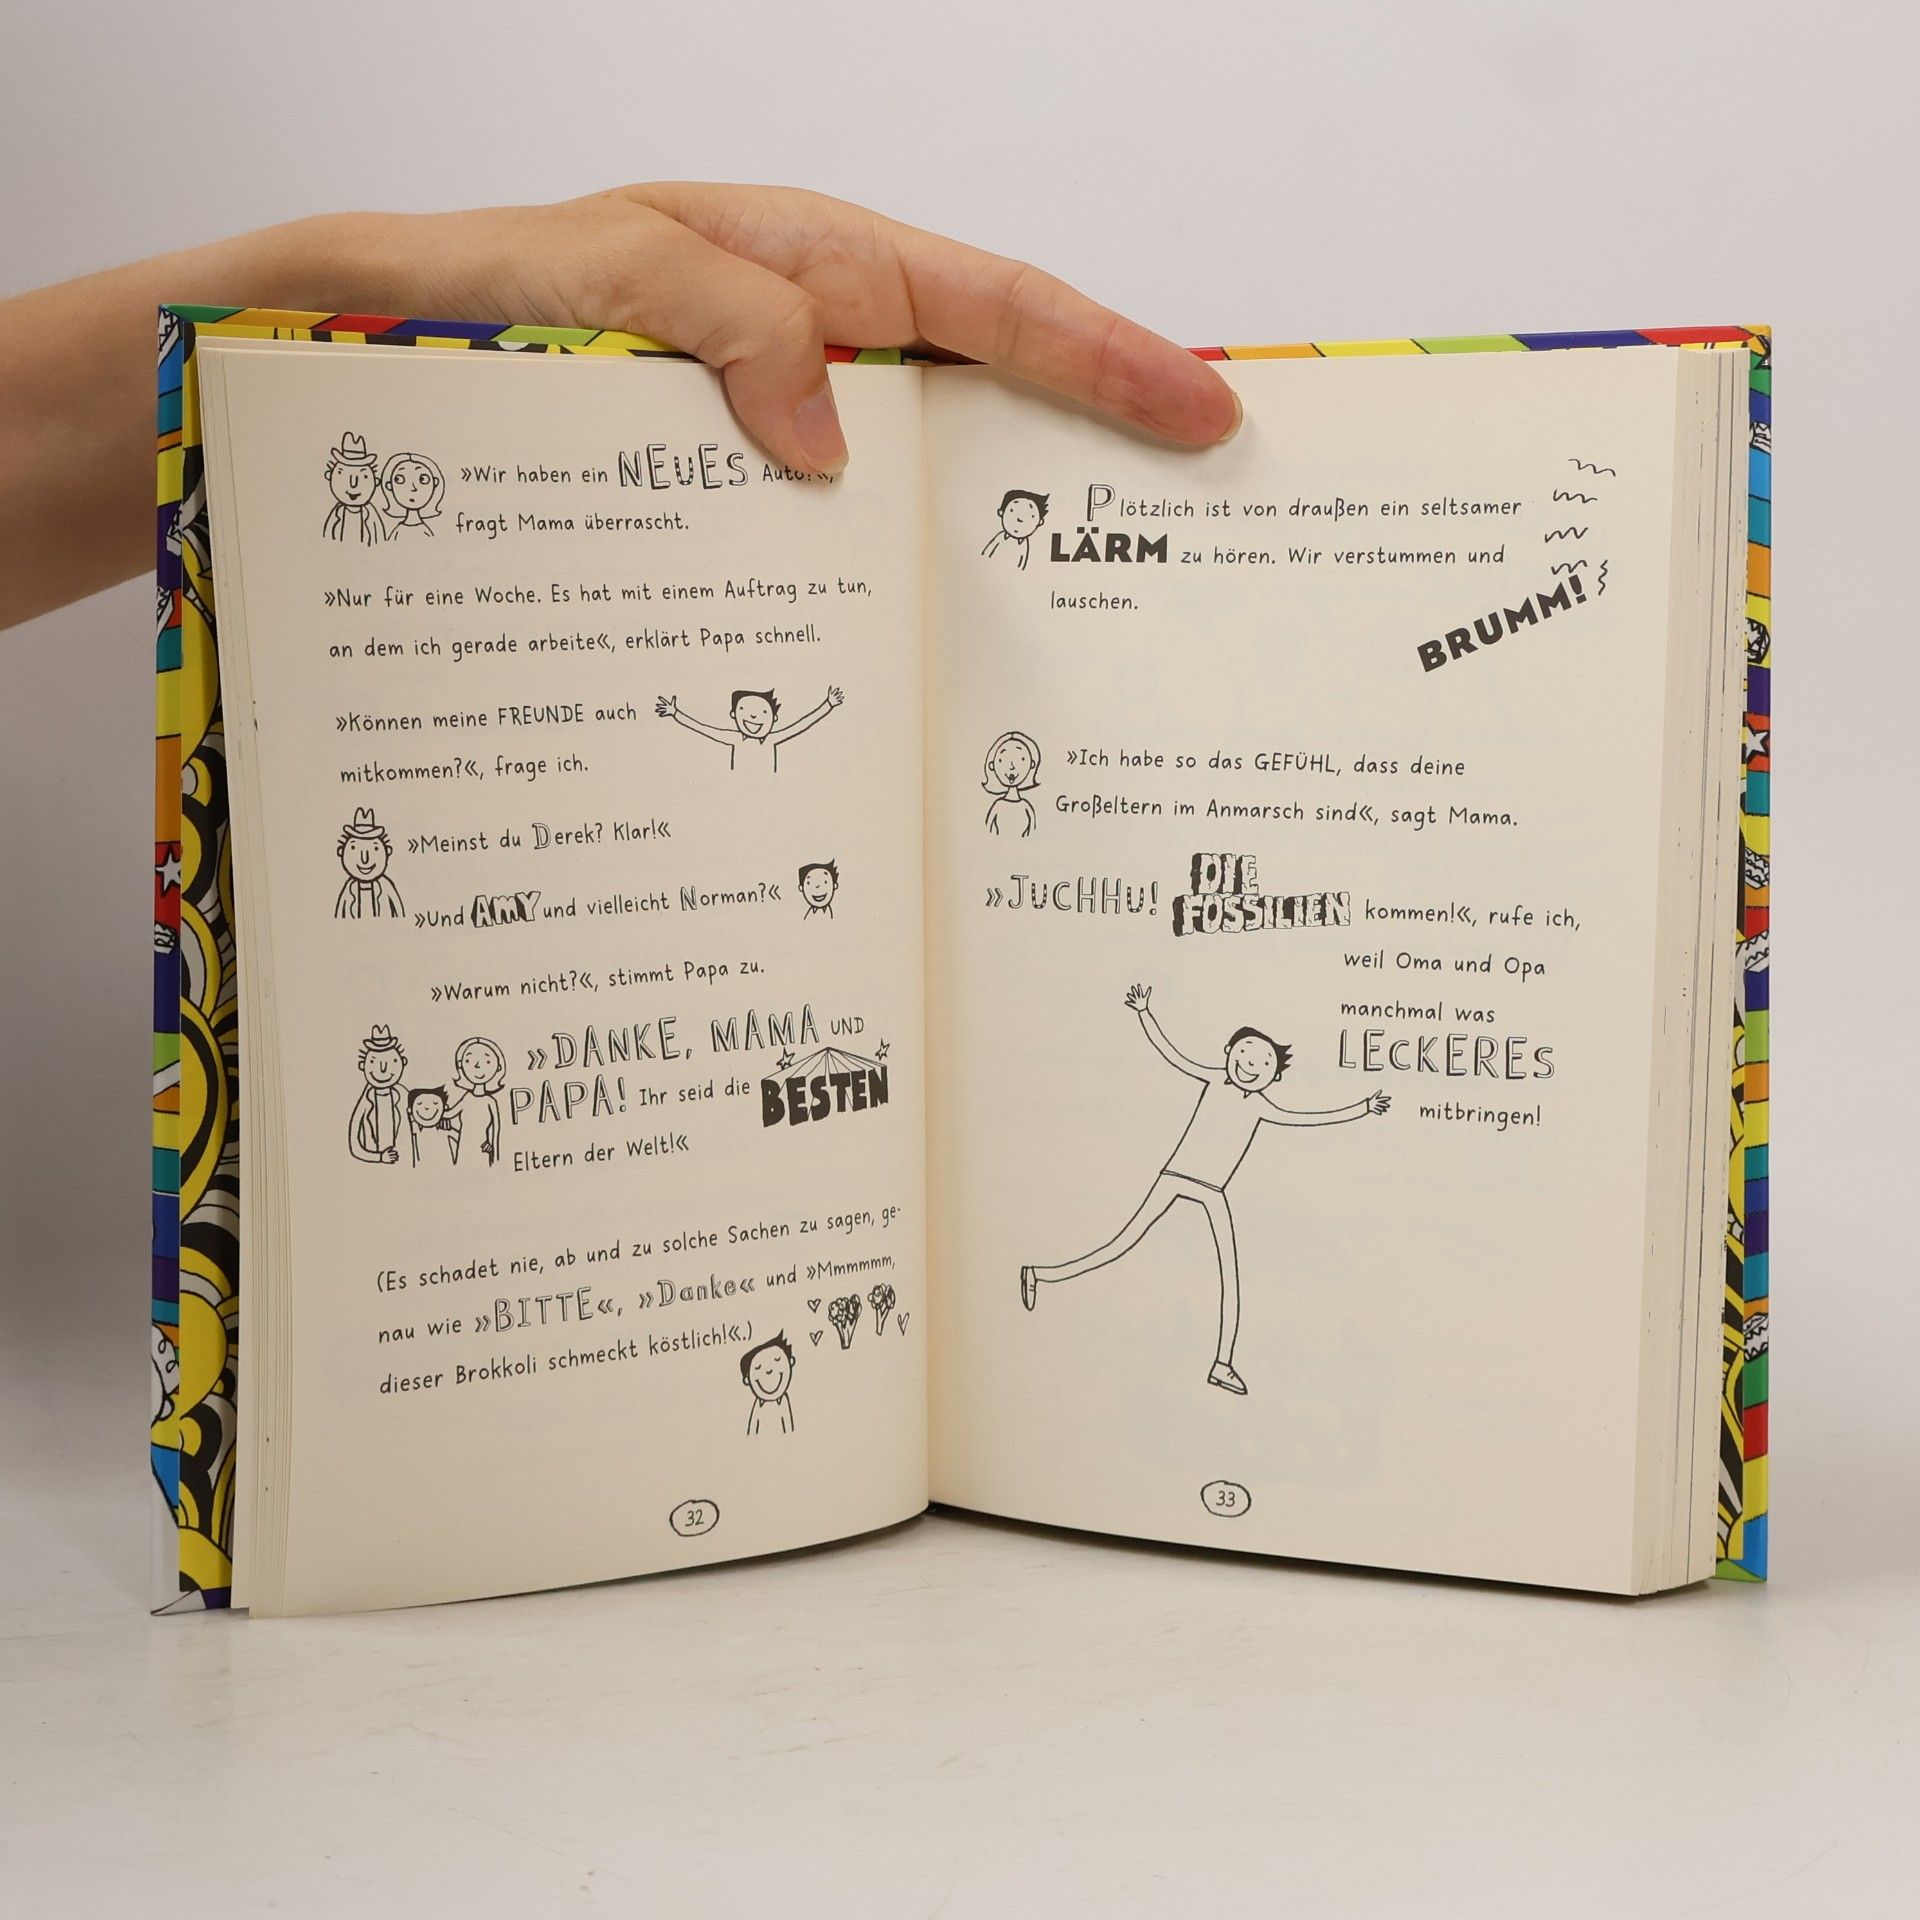 »Wir haben ein NEUES Auto?«,
fragt Mama überrascht.
»Nur für eine Woche. Es hat mit einem Auftrag zu tun,
an dem ich gerade arbeite«, erklärt Papa schnell.
»Können meine FREUNDE auch
mitkommen?«, frage ich.
»Meinst du Derek? Klar!«
»Und AMY und vielleicht Norman?«
»Warum nicht?«, stimmt Papa zu.
»DANKE, MAMA UND
PAPA! Ihr seid die BESTEN
Eltern der Welt!«
(Es schadet nie, ab und zu solche Sachen zu sagen, ge-
nau wie »BITTE«, »Danke« und »Mmmmmm,
dieser Brokkoli schmeckt köstlich!«.)
32
Plötzlich ist von draußen ein seltsamer
LÄRM zu hören. Wir verstummen und
lauschen.
BRUMM!
»Ich habe so das GEFÜHL, dass deine
Großeltern im Anmarsch sind«, sagt Mama.
»JUCHHU! DIE
FOSSILIEN kommen!«, rufe ich,
weil Oma und Opa
manchmal was
LECKERES
mitbringen!
33